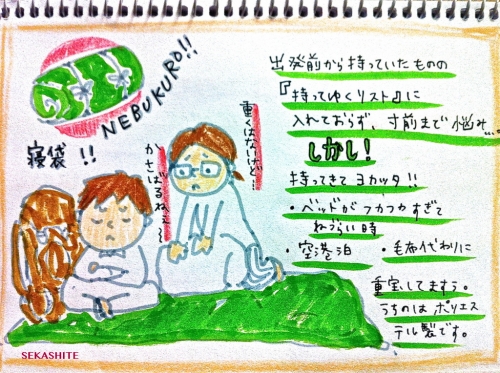 NEBUKURO!!
寝袋!!
重くはないけど…
かさばるねぇ〜
出発前から持っていたものの
『持ってゆくリスト』に
入れておらず、寸前まで悩み…。
しかし!
持ってきてヨカッタ!!
・ベッドがフカフカすぎて
ねづらい時
・空港泊 ・毛布代わりに
重宝してますぅ。
うちのは ポリエス
テル製です。
SEKASHITE